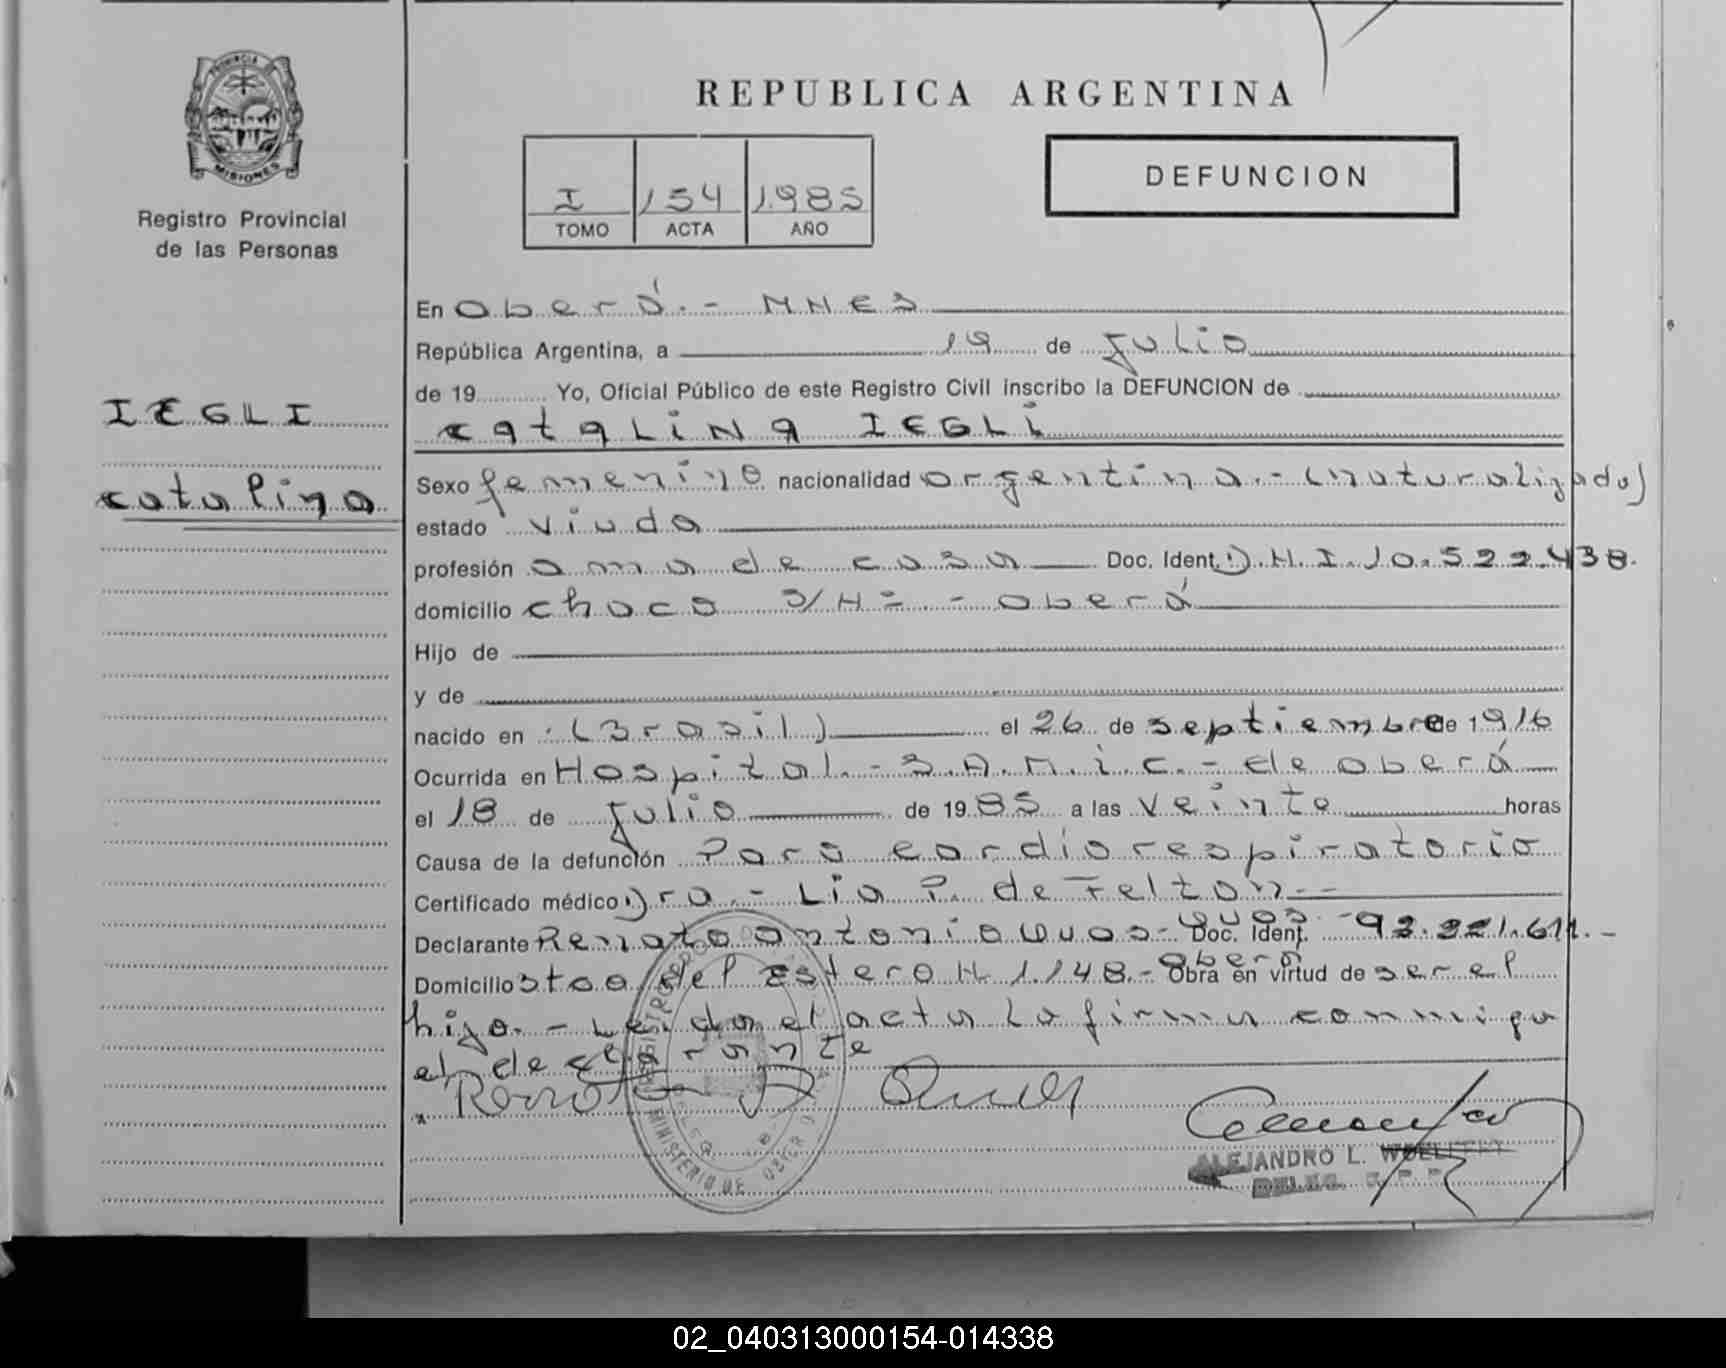 REPUBLICA ARGENTINA
PROVINCIA DE
MISIONES
Registro Provincial
de las Personas
I 154 1985
TOMO ACTA AÑO
DEFUNCION
En Oberá.- MNES
República Argentina, a 19 de Julio
de 19 Yo, Oficial Público de este Registro Civil inscribo la DEFUNCION de
IEGLI
Catalina
Catalina IEGLI
Sexo femenino nacionalidad argentina.- (naturalizada)
estado viuda
profesión ama de casa Doc. Ident. D.N.I. 10.522.438.
domicilio Chaco S/Nº - Oberá
Hijo de
y de
nacido en (Brasil) el 26 de septiembre de 1916
Ocurrida en Hospital - S.A.M.i.C. - de Oberá
el 18 de Julio de 1985 a las veinte horas
Causa de la defunción Paro cardiorespiratorio
Certificado médico Dra.- Lia P. de Felton.-
Declarante Renato Antonio Doc. Ident. 611.-
Domicilio Stgo del Estero N 1.148.- Oberá Obra en virtud de ser el
hijo.- Leida el acta la firma conmigo
el declarante
ALEJANDRO L.
02_040313000154-014338